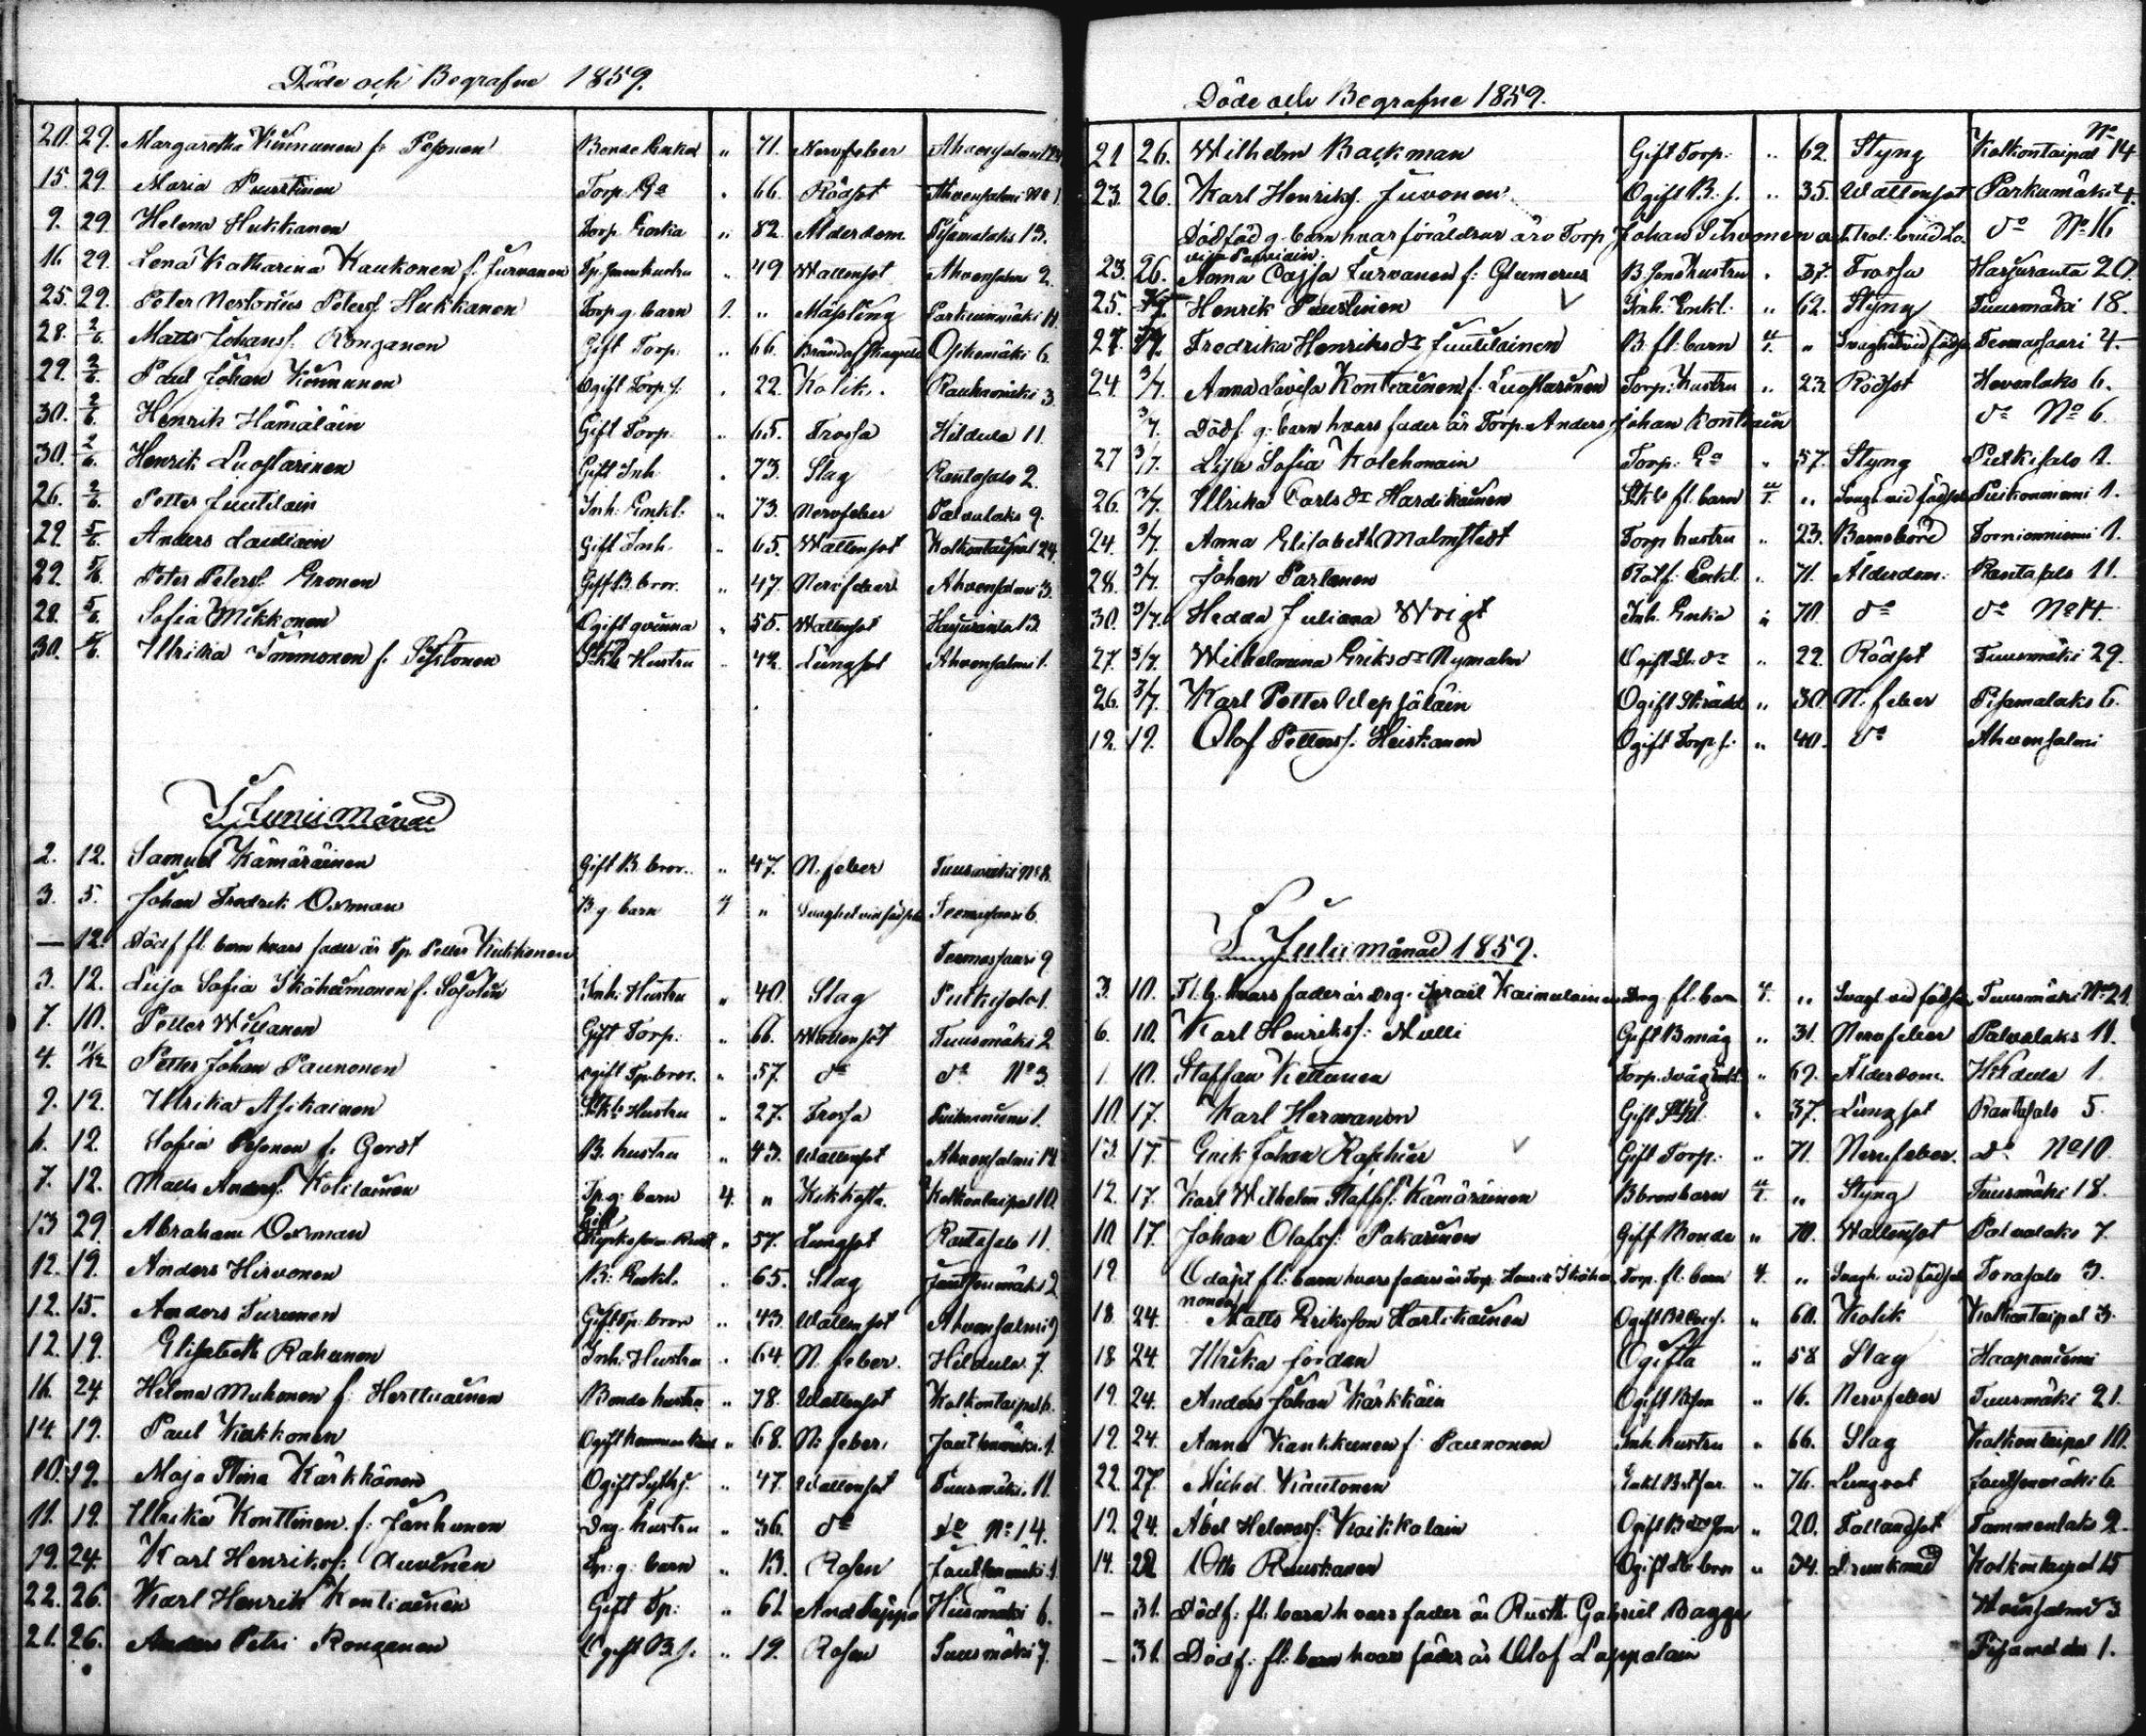 Döde och Begrafne 1859.
20. 29. Margaretha Kinnunen f. Pesonen Bonde Enka " 71. Nervfeber Ahvensalmi
15. 29. Maria Puustinen Torp. 66. Rödsot Ahvensalmi No 1.
9. 29 Helena Hukkanen Torp. Enka " 82 Ålderdom. Pisamalaks 13.
16 29. Lena Katharina Kaukonen f. Turvanen Tp. sons hustru " 49 Wattensot Ahvensalmi 2.
25. 29. Peter Nestorius Petersf. Hukkanen Torp. g. barn 1. " Mässling Parkumäki 11.
28. 2/6. Matts Johansf. Ronganen Gift Torp. " 66. Osikomäki 6.
29. 2/6. Paul Johan Kinnunen Ogift Torp. f. " 22. Kolik. Raukomäki 3.
30. 2/6. Henrik Hämäläin Gift Torp. " 65. Frossa Hildula 11
30. 2/6. Henrik Luostarinen Gift Inh. " 73. Slag Rantasalo 2.
26. 2/6. Petter Juutilain Inh. Enkl. " 73. Nervfeber Palvalaks 9.
29. 5/6. Anders Lautiain Gift Inh. " 65. Wattensot Kolkontaipal 24.
29. 5/6. Peter Petersf. Gronen Gift B. bror. " 47. Nervfeber Ahvensalmi 3.
28. 5/6. Sofia Mikkonen Ogift qvinna " 55. Wattensot Harjuranta 13.
30. 5/6. Ulrika Immonen f. Hustru " 42. Lungsot Ahvensalmi 1.
I Junii månad
2. 12. Samuel Kämäräinen Gift B. bror. " 47. N. feber Tuusmäki No 8.
3. 5. Johan Fredrik Oxman B. g. barn 4 " Svaghet vid födseln Tevassaari 6.
— 12. Dödf. fl. barn hvars fader är Tp. Petter Kukkonen 9
3. 12. Leisa Sofia Ikäheimonen f. Inh. Hustru " 40. Slag Putkisalo 1.
7. 10. Petter Willanen Gift Torp. " 66. Wattensot Tuusmäki 2
4. 11/12 Petter Johan Paunonen ogift Tp. bror. " 57. do do No 3.
9. 12. Ulrika Asikainen Hustru " 27. Frossa 1.
6. 12. Sofia Pesonen f. Gerdt B. hustru " 43. Wattensot Ahvensalmi 14
7. 12. Matts Andersf. Tp. g. barn 4. " Kikhosta. Kolkontaipal 10.
13 29. Abraham Oxman Gift " 57. Lungsot Rantasalo 11.
12. 19. Anders Hirvonen B. Enkl. " 65. Slag 2
12. 15. Anders Turunen Gift Tp. bror " 43. Wattensot Ahvensalmi 9
12. 19. Elisabeth Rahunen Inh. Hustru " 64. N. feber. Hildula 7.
16. 24 Helena Muhonen f. Herttuainen Bonde hustru " 78. Wattensot Kolkontaipal 6.
14. 19. Paul Kiakkonen Ogift " 68. N. feber. 1.
10. 19. Maja Stina Kärkkänen Ogift " 47. Wattensot Tuusmäki 11
11. 19. Ulrika Konttinen f. Janhunen Drg. hustru " 36. do do No 14.
19. 24. Karl Henriksf. Auvinen Tp. g. barn " 13. Rosen 1.
22. 26. Karl Henrik Kontiainen Gift Tp. " 61. Andtäppa 6.
21. 26. Anders Petri Ronganen Ogift B. f. " 19. Rosen Tuusmäki 7.
Döde och Begrafne 1859.
21 26. Wilhelm Backman Gift Torp. " 62. Styng Kolkontaipal No 14
23. 26. Karl Henriksf. Juvonen Ogift B. f. " 35. Wattensot Parkumäki 4.
Dödföd g. barn hvars föräldrar äro Torp. Johan do No 16
23. 26. Anna Cajsa Turvanen f. Glumerus B. sons hustru " 37. Frossa Harjuranta 20.
25. Henrik Puustinen Inh. Enkl. " 62. Styng Tuusmäki 18.
27. Fredrika Henriks dr Juutilainen B. fl. barn " Svaghet vid föds. 4.
24. 3/7. Anna Lovisa Kontiainen f. Luostarinen Torp. Hustru " 23 Rödsot Hevonlaks 6.
3/7. Dödf. g. barn hvars fader är Torp. Anders Johan Kontiain do No 6.
27 3/7. Lisa Sofia Kolehmain Torp. " 57. Styng Putkisalo 1.
26. 3/7. Ulrika Carls dr Hardikainen fl. barn " Svagh. vid födseln Puikonniemi 1.
24. 3/7. Anna Elisabeth Malmstedt Torp hustru " 23. Barnsbörd Tornionniemi 1.
28. 3/7. Johan Parlanen Enkl. " 71. Ålderdom. Rantasalo 11.
30. 3/7. Hedda Juliana Wrigt Inh. Enka " 70. do do No 14.
27. 3/7. Wilhelmina Eriks dr Nymalm Ogift dr " 22. Rödsot Tuusmäki 29.
26. 3/7. Karl Petter Wepsäläin Ogift Skrädd " 30. N. feber Pisamalaks 6.
12. 19. Olof Pettersf. Heiskanen Ogift Torp f. " 40. do Ahvensalmi
I Julii månad 1859.
3. 10. Fl. g. hvars fader är Drg. Israel Kaimulainen Drg. fl. barn 4. " Svagh. vid födseln Tuusmäki No 21
6. 10. Karl Henriksf. Mulli Gift B. måg " 31. Nervfeber Palvalaks 11.
1. 10. Staffan Kiettanen Torp. " 69. Ålderdom. Hildula 1.
10. 17. Karl Hermanson Gift " 37. Lungsot Rantasalo 5.
13. 17. Erik Johan Raschier Gift Torp. " 71. Nervfeber. do No 10.
12. 17. Karl Wilhelm Staffsf. Kämäräinen B brors barn " Styng Tuusmäki 18.
10 17. Johan Olofsf. Pakarinen Gift Bonde " 70. Wattensot Palvalaks 7.
12 Odöpt fl. barn hvars fader är Torp. Henrik Ikähei- Torp. fl. barn 4. " Svagh. vid födseln Torasalo 3.
monen
18 24. Matts Eriksson Hartikainen Ogift " 60. Kolik Kolkontaipal 3.
18 24. Ulrika Jordan Ogifta " 58 Slag Haapaniemi
19. 24. Anders Johan Kärkkäin Ogift B. son " 16. Nervfeber Tuusmäki 21.
19. 24. Anna Kankkunen f. Paunonen Inh. hustru " 66. Slag Kolkontaipal 10.
22. 27. Michel Kiautonen Enkl. " 76. Lungsot 6.
19. 24. Abel Helenasf. Kaikkalain Ogift " 20. Fallandsot Tammenlaks 2
14. 22 Otto Ruuskanen Ogift bror " 34. Drunknad Kolkontaipal 15
– 31. Dödf. fl. barn hvars fader är Rusth. Gabriel Bagge Ahvensalmi 3
– 31. Dödf. fl. barn hvars fader är Olof Lappalain 1.